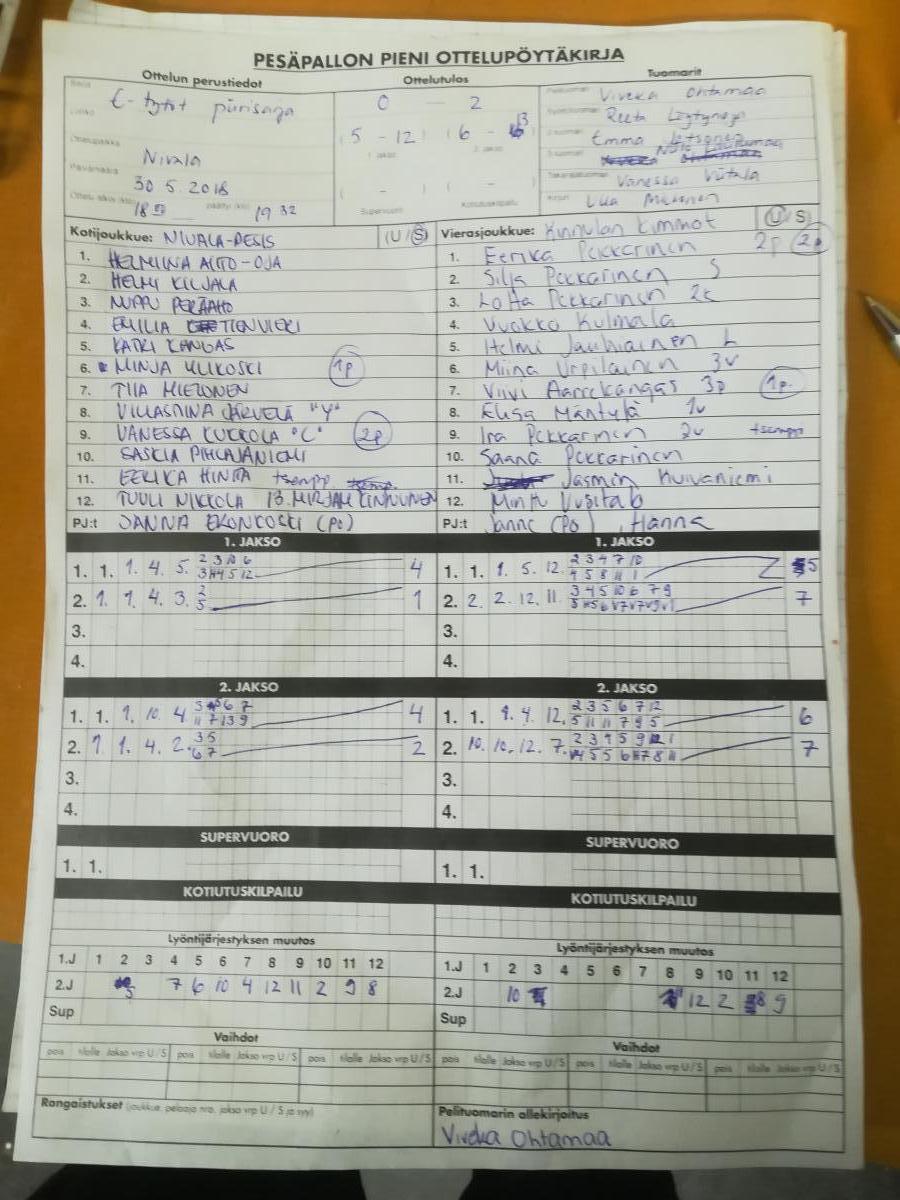 PESÄPALLON PIENI OTTELUPÖYTÄKIRJA
Ottelun perustiedot Ottelutulos Tuomarit
E-tytöt piirisarja
0 – 2
5 – 12 6 – 13
Nivala
30 5. 2018
18 19 32
Supervuoro Kotiutuskilpailu
Viveka Ohtamaa
Reeta
Emma
Vanessa
Kotijoukkue: NIVALA-PESIS (U/S)
1. HELMIINA AITTO-OJA
2. HELMI KILJALA
3. NUPPU PERÄAHO
4. EMILIA TIENVIERI
5. KATRI KANGAS
6. MINJA ULIKOSKI 1p
7. TIIA MIELONEN
8. VILLASTIINA JÄRVELÄ "Y"
9. VANESSA KUKKOLA "C" 2p
10. SASKIA PIHLAJANIEMI
11. EERIKA HINTA tsemp
12. TUULI NIKKOLA 13. MIRJAM KINNUNEN
PJ:t JANNA EKONKOSKI (PO)
Vierasjoukkue: Kinnulan Kimmot (U/S)
1. Eerika Pekkarinen 2p 2p
2. Silja Pekkarinen S
3. Lotta Pekkarinen 2k
4. Vuokko Kulmala
5. Helmi Jauhiainen L
6. Miina Urpilainen 3v
7. Viivi Aarrekangas 3p 1p.
8. Elisa Mäntylä 1v
9. Ira Pekkarinen 2v tsemppi
10. Saana Pekkarinen
11. Jasmin Kuivaniemi
12. Minttu
PJ:t Janne (PO), Hanna
1. JAKSO 1. JAKSO
1. 1. 1. 4. 5. 2 3 10 6 4
3 4 5 12
2. 1. 1. 4. 3. 2 1
5
3.
4.
1. 1. 1. 5. 12. 2 3 4 7 10 5
4 5 8 11 1
2. 2. 2. 12. 11. 3 4 5 10 6 7 9 7
3.
4.
2. JAKSO 2. JAKSO
1. 1. 1. 10. 4 6 7 4
11 7 13 9
2. 1. 1. 4. 2. 3 5 2
6 7
3.
4.
1. 1. 9. 4. 12. 2 3 5 6 7 12 6
5 11 11 7 9 5
2. 10. 10. 12. 7. 2 3 4 5 9 1 7
3.
4.
SUPERVUORO SUPERVUORO
1. 1. 1. 1.
KOTIUTUSKILPAILU KOTIUTUSKILPAILU
Lyöntijärjestyksen muutos Lyöntijärjestyksen muutos
1.J 1 2 3 4 5 6 7 8 9 10 11 12
2.J 3 7 6 10 4 12 11 2 9 8
Sup
1.J 1 2 3 4 5 6 7 8 9 10 11 12
2.J 10 12 2 8 9
Sup
Vaihdot Vaihdot
pois tilalle Jakso vrp U/S pois tilalle Jakso vrp U/S pois tilalle Jakso vrp U/S
pois tilalle Jakso vrp U/S pois tilalle Jakso vrp U/S pois tilalle Jakso vrp U/S
Rangaistukset (joukkue, pelaaja nro, jakso vrp U/S ja syy)
Pelituomarin allekirjoitus
Viveka Ohtamaa